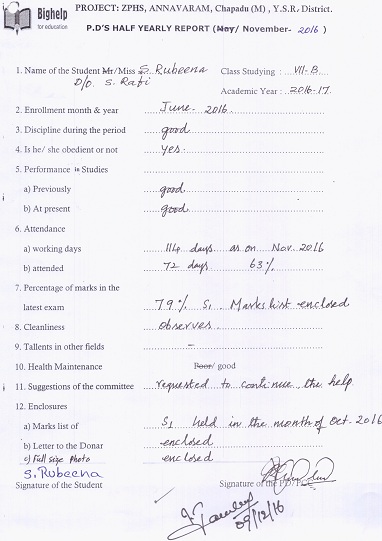 Bighelp
for education
PROJECT: ZPHS, ANNAVARAM, Chapadu (M) , Y.S.R. District.
P.D'S HALF YEARLY REPORT (May/ November- 2016)
1. Name of the Student Mr/Miss S. Rubeena Class Studying : VII-B
D/o S. Rafi Academic Year : 2016-17
2. Enrollment month & year June- 2016
3. Discipline during the period good
4. Is he/ she obedient or not yes.
5. Performance in Studies
a) Previously good
b) At present good
6. Attendance
a) working days 114 days as on Nov 2016
b) attended 72 days 63%
7. Percentage of marks in the
latest exam 79% S1 Marks list enclosed
8. Cleanliness observes
9. Tallents in other fields -
10. Health Maintenance Poor/ good
11. Suggestions of the committee requested to continue the help
12. Enclosures
a) Marks list of S1 held in the month of Oct. 2016
b) Letter to the Donar enclosed
c) Full size photo enclosed
S. Rubeena
Signature of the Student Signature of the P.D
09/12/16